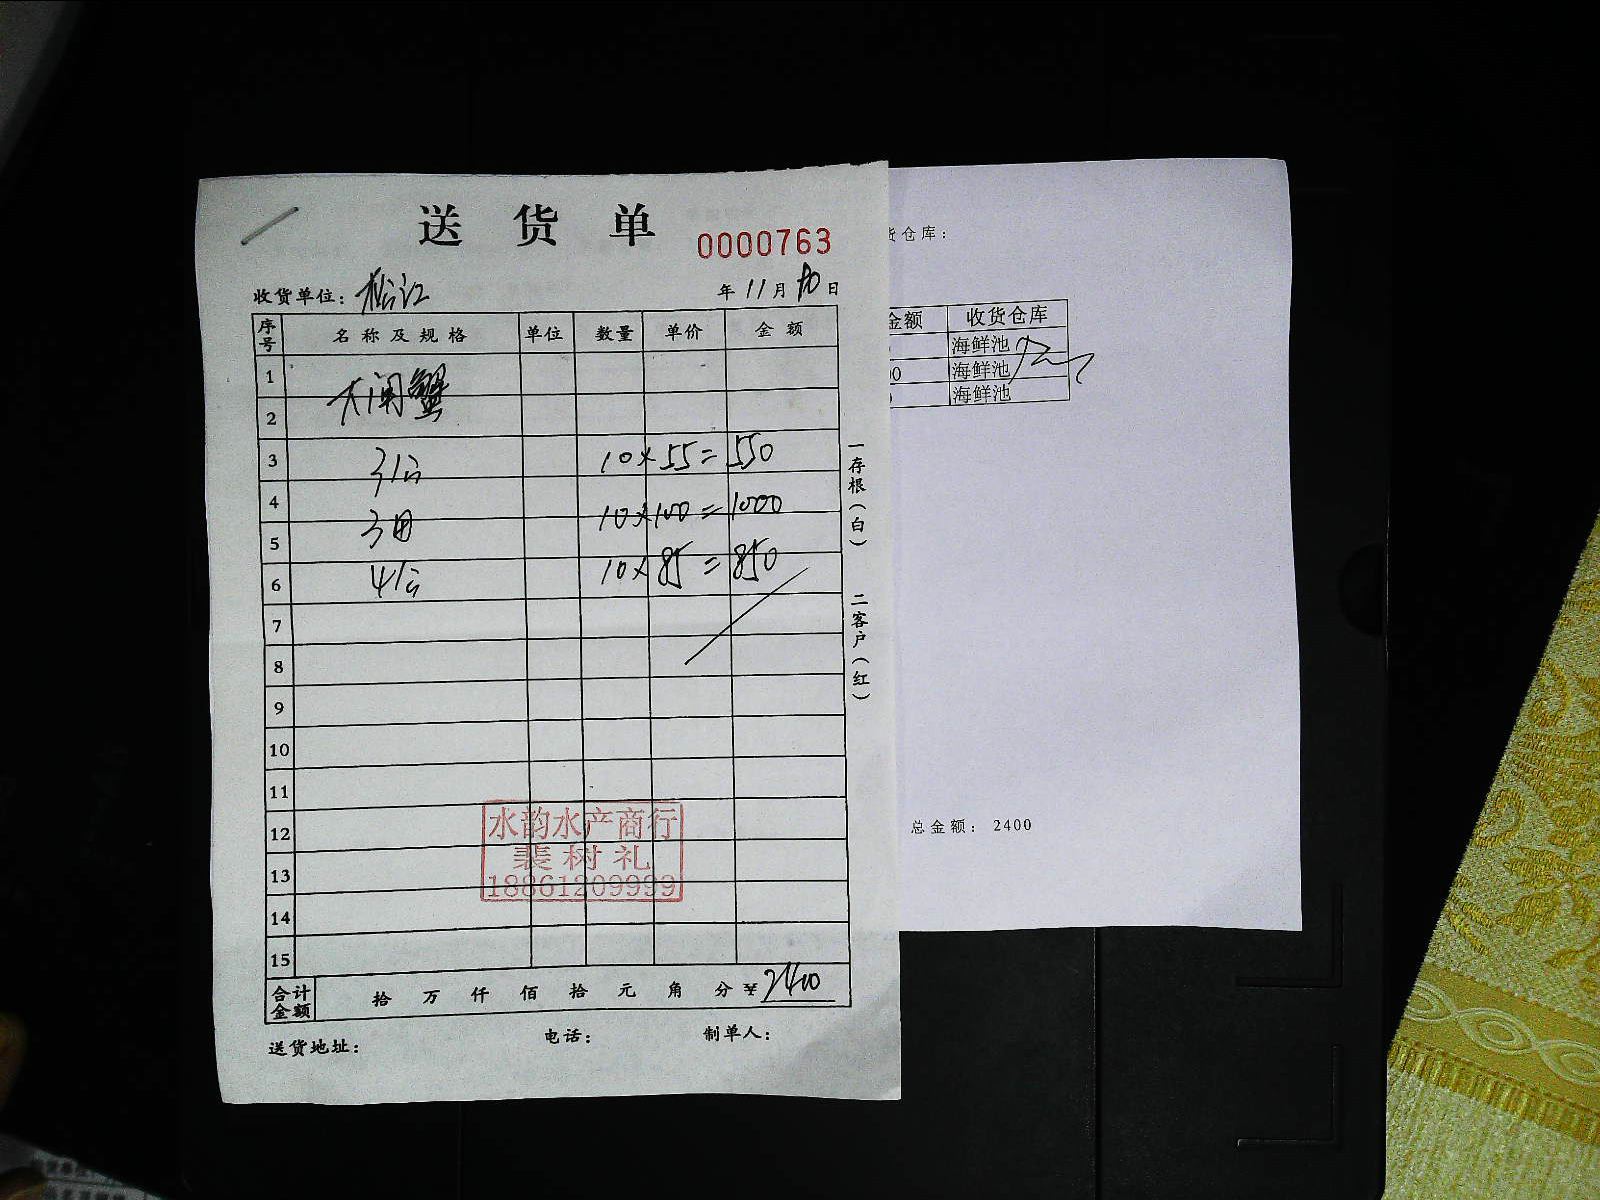 送货单
0000763
收货单位: 松江 年 11 月 10 日
序号 名称及规格 单位 数量 单价 金额
1
大闸蟹
2
3 3公 10×55=550
4
3母 10×100=1000
5
6 4公 10×85=850
7
8
9
10
11
12
13
14
15
水韵水产商行
裴树礼
18861209999
合计金额 拾 万 仟 佰 拾 元 角 分 ¥2400
送货地址: 电话: 制单人:
一存根(白) 二客户(红)
货仓库:
金额 收货仓库
海鲜池
00 海鲜池
海鲜池
总金额: 2400